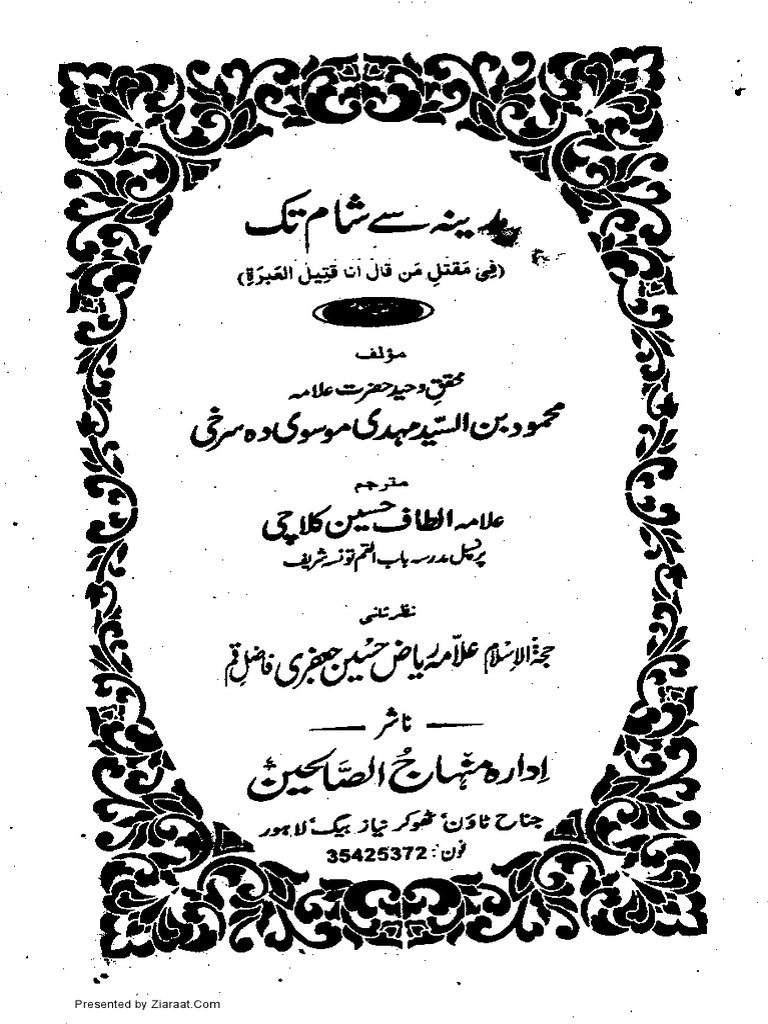 مدینہ سے شام تک
(فِیْ مَقتَلِ مَن قَالَ اَنا قَتِیلُ العَبرَةِ)
مؤلف
محقق وحید حضرت علامہ
محمود بن السیّد مہدی موسوی دہ سرخی
مترجم
علامہ الطاف حسین کلاچی
پرنسپل مدرسہ باب القم تونسہ شریف
نظر ثانی
حجۃ الاسلام علامہ ریاض حسین جعفری فاضل قم
ناشر
ادارہ منہاج الصالحین
جناح ٹاؤن ٹھوکر نیاز بیگ لاہور
فون: 35425372
Presented by Ziaraat.Com